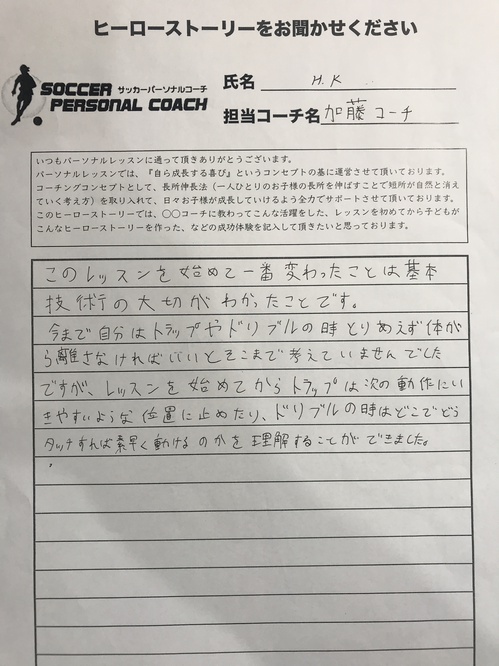 ヒーローストーリーをお聞かせください
SOCCER サッカーパーソナルコーチ
PERSONAL COACH
氏名 H.K
担当コーチ名 加藤コーチ
いつもパーソナルレッスンに通って頂きありがとうございます。
パーソナルレッスンでは、『自ら成長する喜び』というコンセプトの基に運営させて頂いております。
コーチングコンセプトとして、長所伸長法(一人ひとりのお子様の長所を伸ばすことで短所が自然と消え
ていく考え方)を取り入れて、日々お子様が成長していけるよう全力でサポートさせて頂いております。
このヒーローストーリーでは、〇〇コーチに教わってこんな活躍をした、レッスンを初めてから子どもが
こんなヒーローストーリーを作った、などの成功体験を記入して頂きたいと思っております。
このレッスンを始めて一番変わったことは基本
技術の大切がわかったことです。
今まで自分はトラップやドリブルの時とりあえず体が
ら離さなければいいとそこまで考えていませんでした
ですが、レッスンを始めてからトラップは次の動作にい
きやすいような位置に止めたり、ドリブルの時はどこでどう
タッチすれば素早く動けるのかを理解することができました。